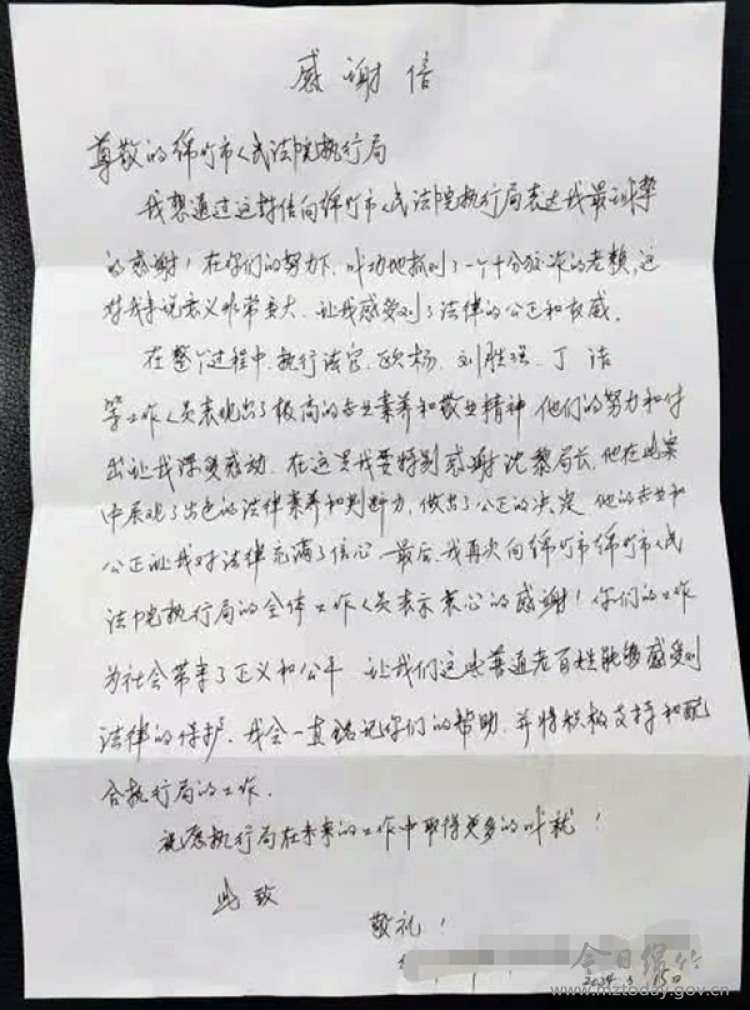 感谢信
尊敬的绵竹市人民法院执行局
我想通过这封信向绵竹市人民法院执行局表达我最诚挚
的感谢！在你们的努力下，成功地抓到了一个十分狡诈的老赖，这
对我来说意义非常重大，让我感受到了法律的公正和权威。
在整个过程中，执行法官、欧杨、刘胜强、丁洁
等工作人员表现出了极高的专业素养和敬业精神，他们的努力和付
出让我深受感动，在这里我要特别感谢沈黎局长，他在此案
中展现了出色的法律素养和判断力，做出了公正的决定，他的专业和
公正让我对法律充满了信心，最后，我再次向绵竹市绵竹市人民
法院执行局的全体工作人员表示衷心的感谢！你们的工作
为社会带来了正义和公平，让我们这些普通老百姓能够感受到
法律的保护，我会一直铭记你们的帮助，并将积极支持和配
合执行局的工作。
祝愿执行局在未来的工作中取得更多的成就！
此致
敬礼！
今日绵竹
2024.3.15日
www.mztoday.gov.cn